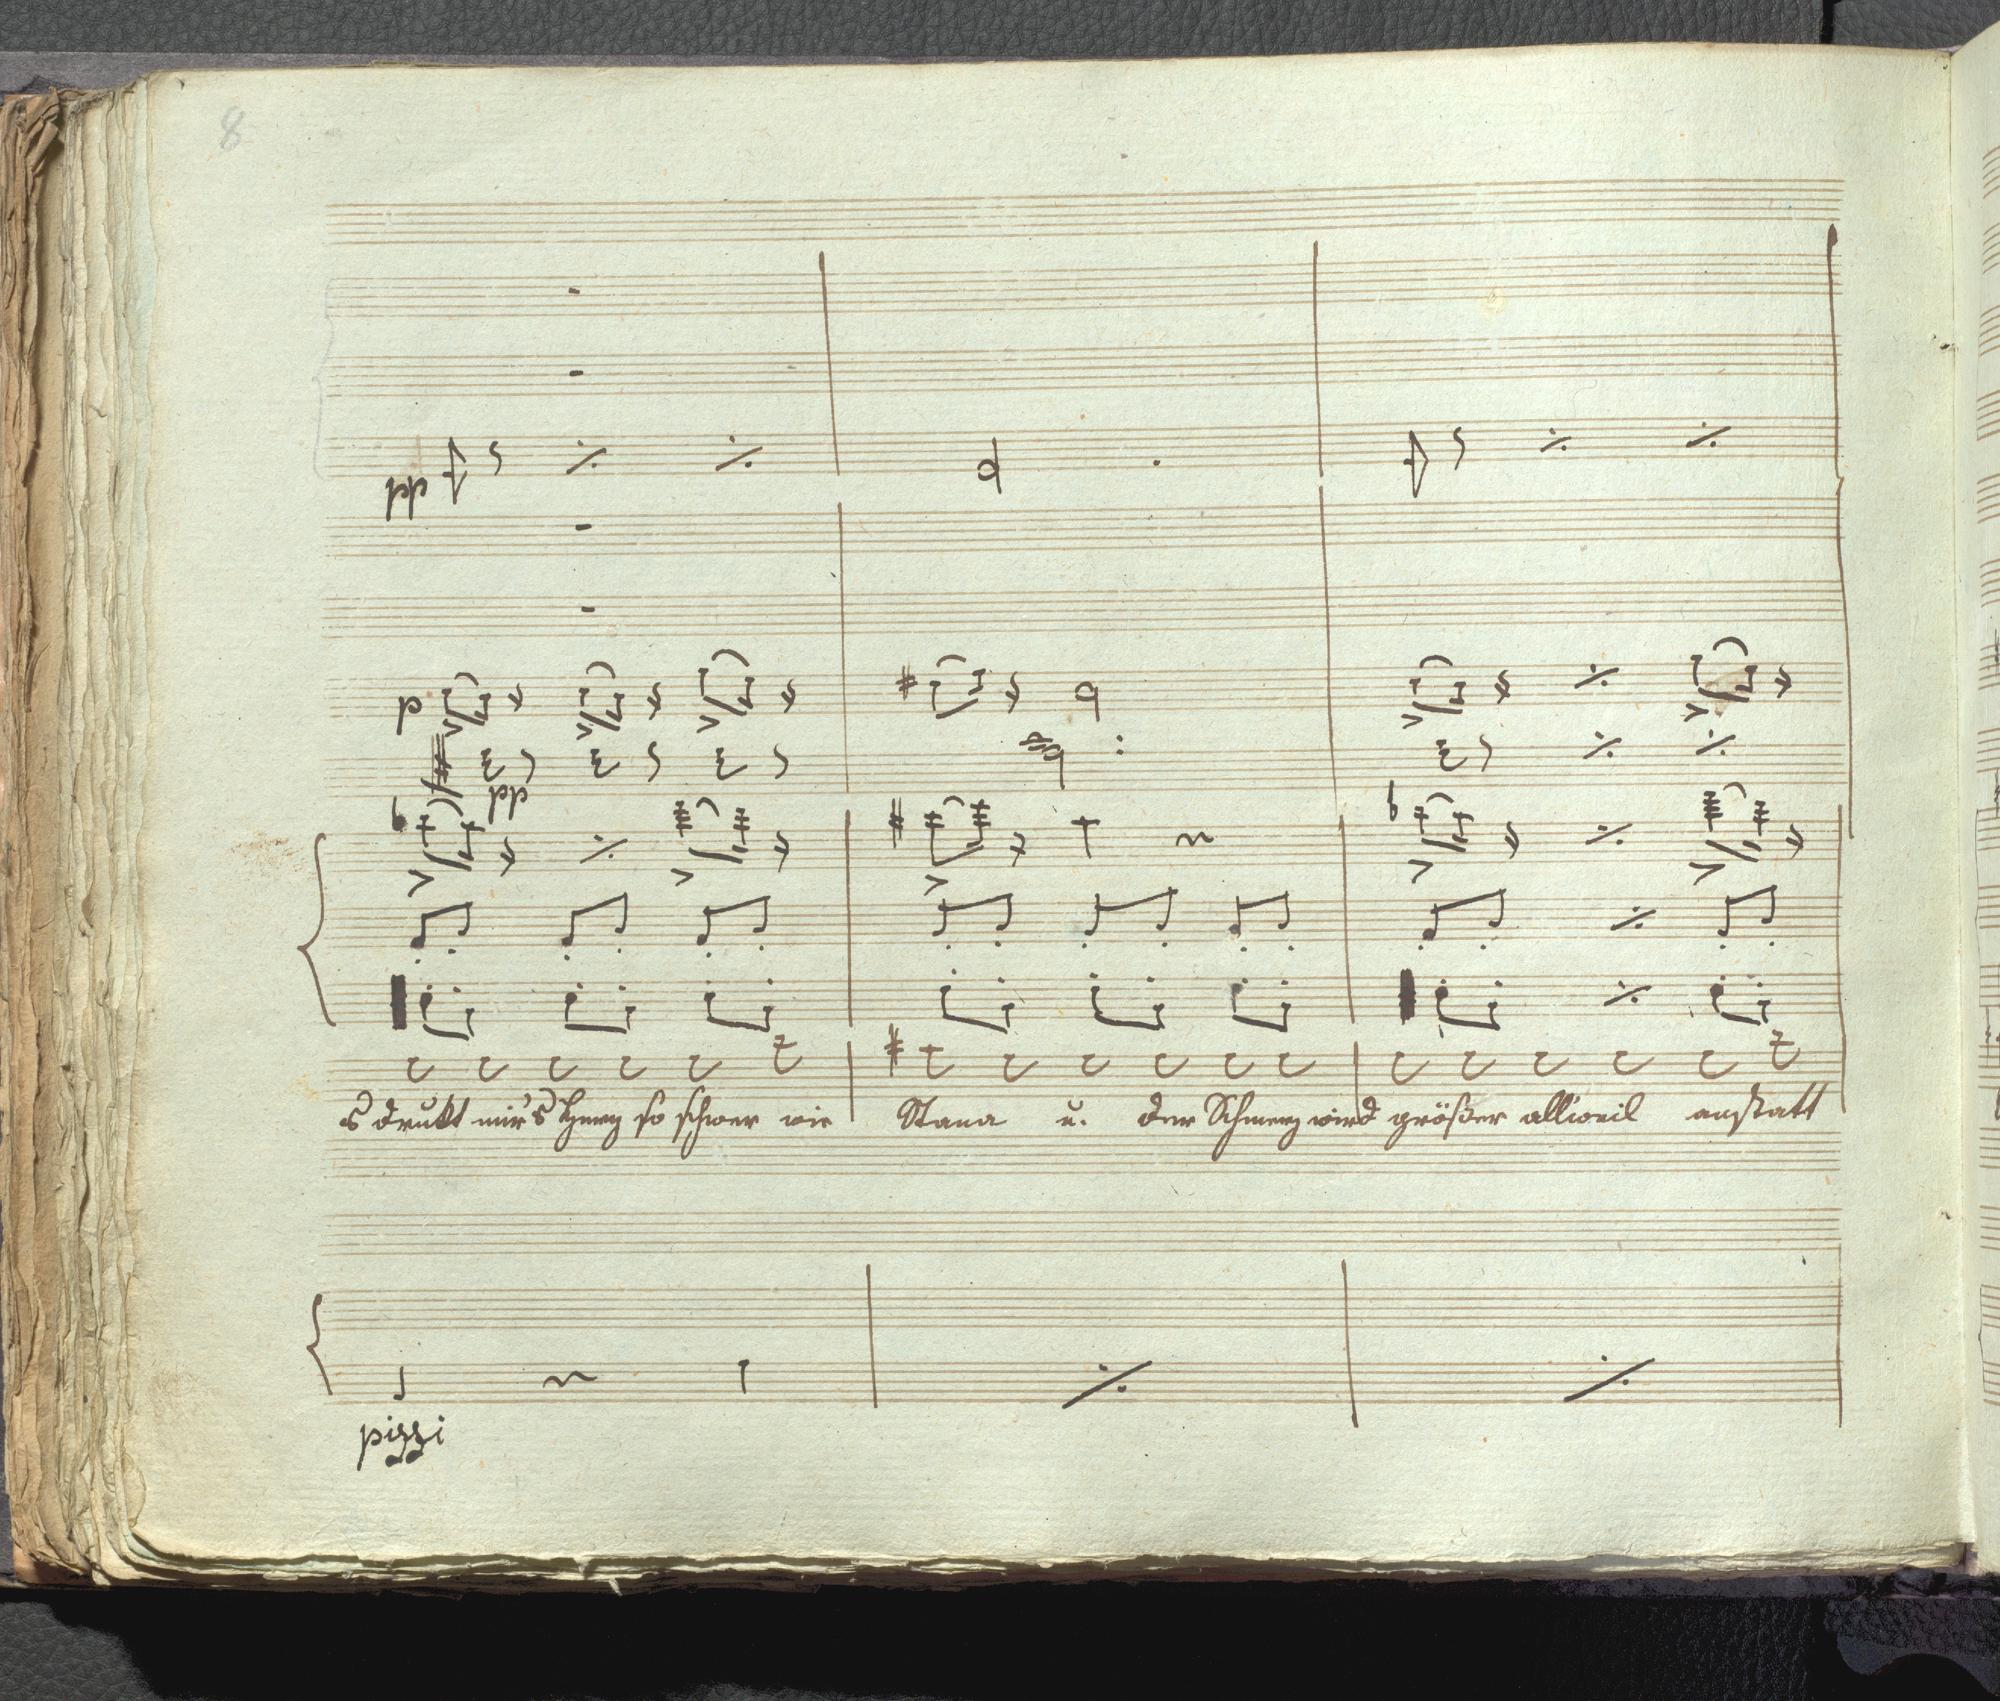 8
pp
p
pp
s drukt mir's Herz so schwer wie Stana u. der Schmerz wird größer allweil anstatt
pizzi